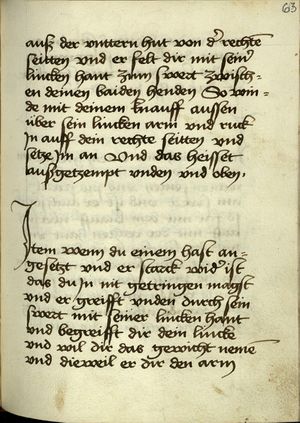 63
auß der vnttern hut von dˢ rechtñ
seitten vnd er felt dir mit seinˢ
lincken hant zum swert zwisch-
en deinen baiden henden So win-
de mit deinem knauff aussen
über sein lincken arm vnd ruck
In auff dein rechte seitten vnd
setze im an Vnd das heisset
außgetzempt vnden vnd oben.
Item wenn du einem hast an-
gesetzt vnd er starck widˢ ist
das du In nit getringen magst
vnd er greifft vnden durch sein
swert mit seiner lincken hant
vnd begreifft dir dein lincke
vnd wil dir das gewicht nemē
vnd dieweil er dir den arm